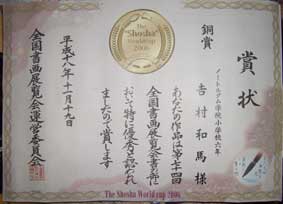 賞状
銅賞
ノートルダム学院小学校六年
吉村和馬様
あなたの作品は第七十一回
全国書画展覧会書の部に
おいて特に優秀と認められ
ましたので賞します
平成十八年十一月十九日
全国書画展覧会運営委員会
The "Shosha" World cup 2006
The Shosha World cup 2006